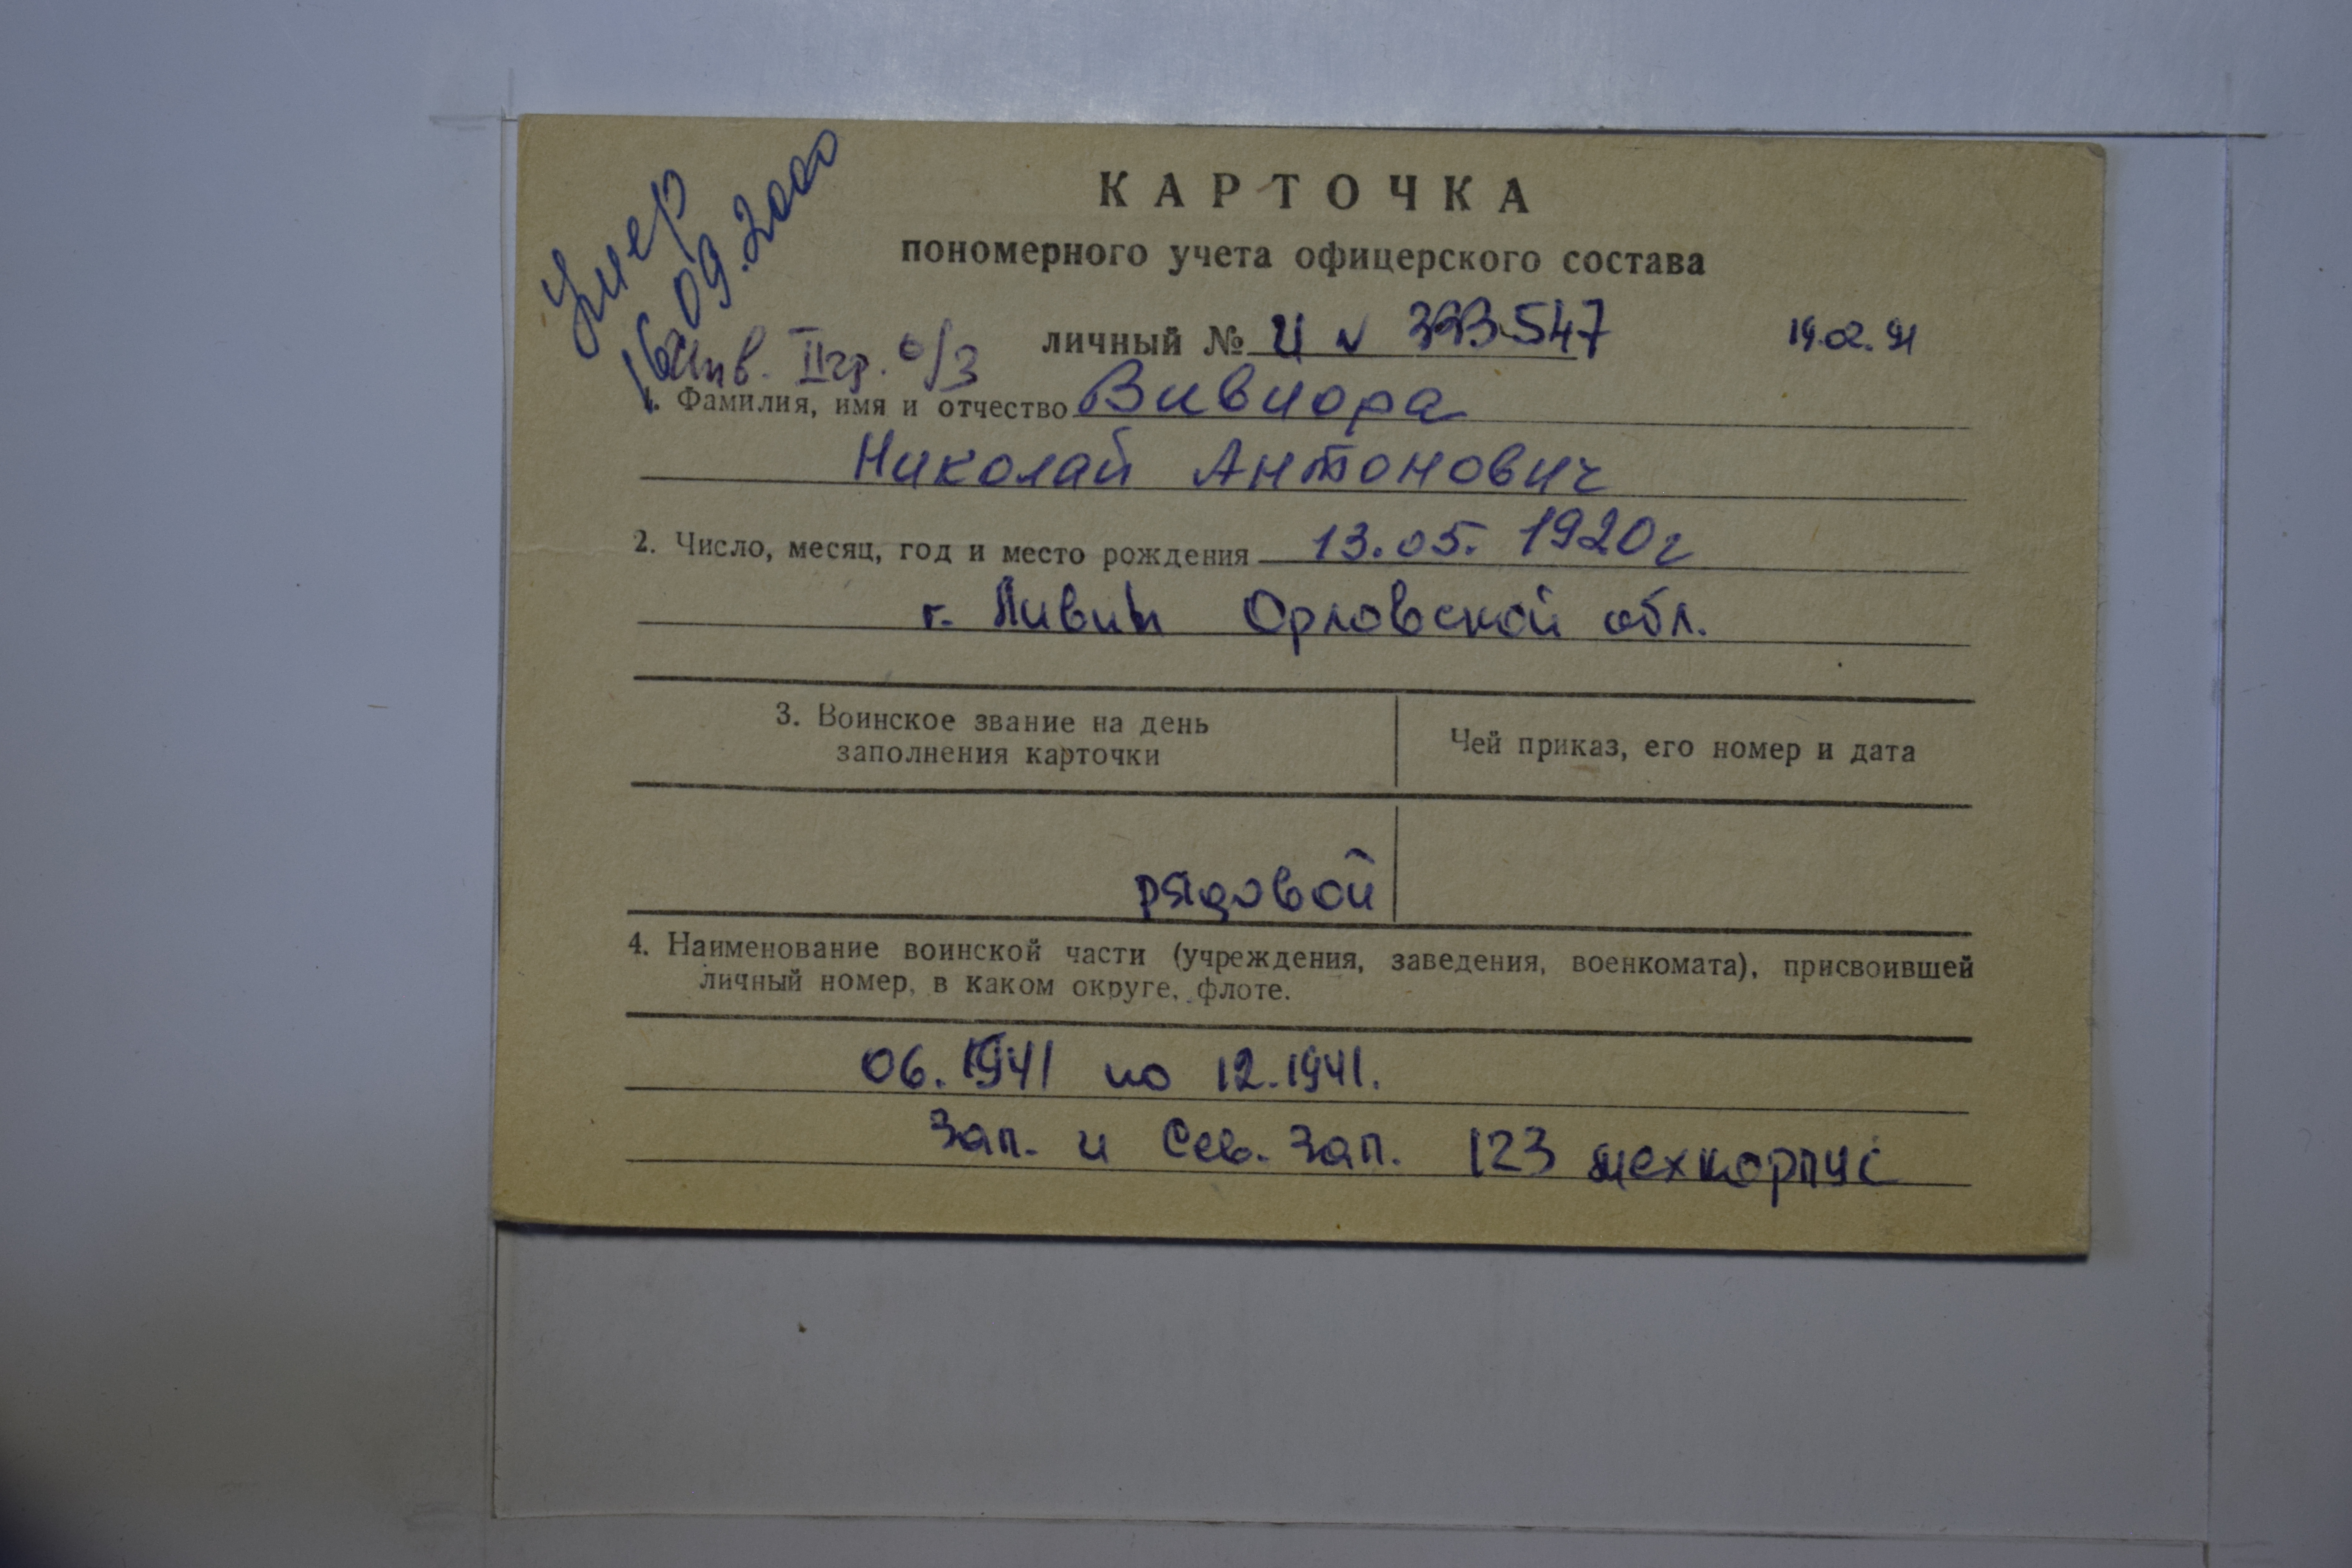 Умер
16.09.2000
КАРТОЧКА
пономерного учета офицерского состава
Инв. II гр. о/з
личный № И № 393547 19.02.91
1. Фамилия, имя и отчество Вивиора
Николай Антонович
2. Число, месяц, год и место рождения 13.05.1920г
г. Ливны Орловской обл.
3. Воинское звание на день
заполнения карточки
Чей приказ, его номер и дата
рядовой
4. Наименование воинской части (учреждения, заведения, военкомата), присвоившей
личный номер, в каком округе, флоте.
06.1941 по 12.1941.
Зап. и Сев. Зап. 123 мехкорпус